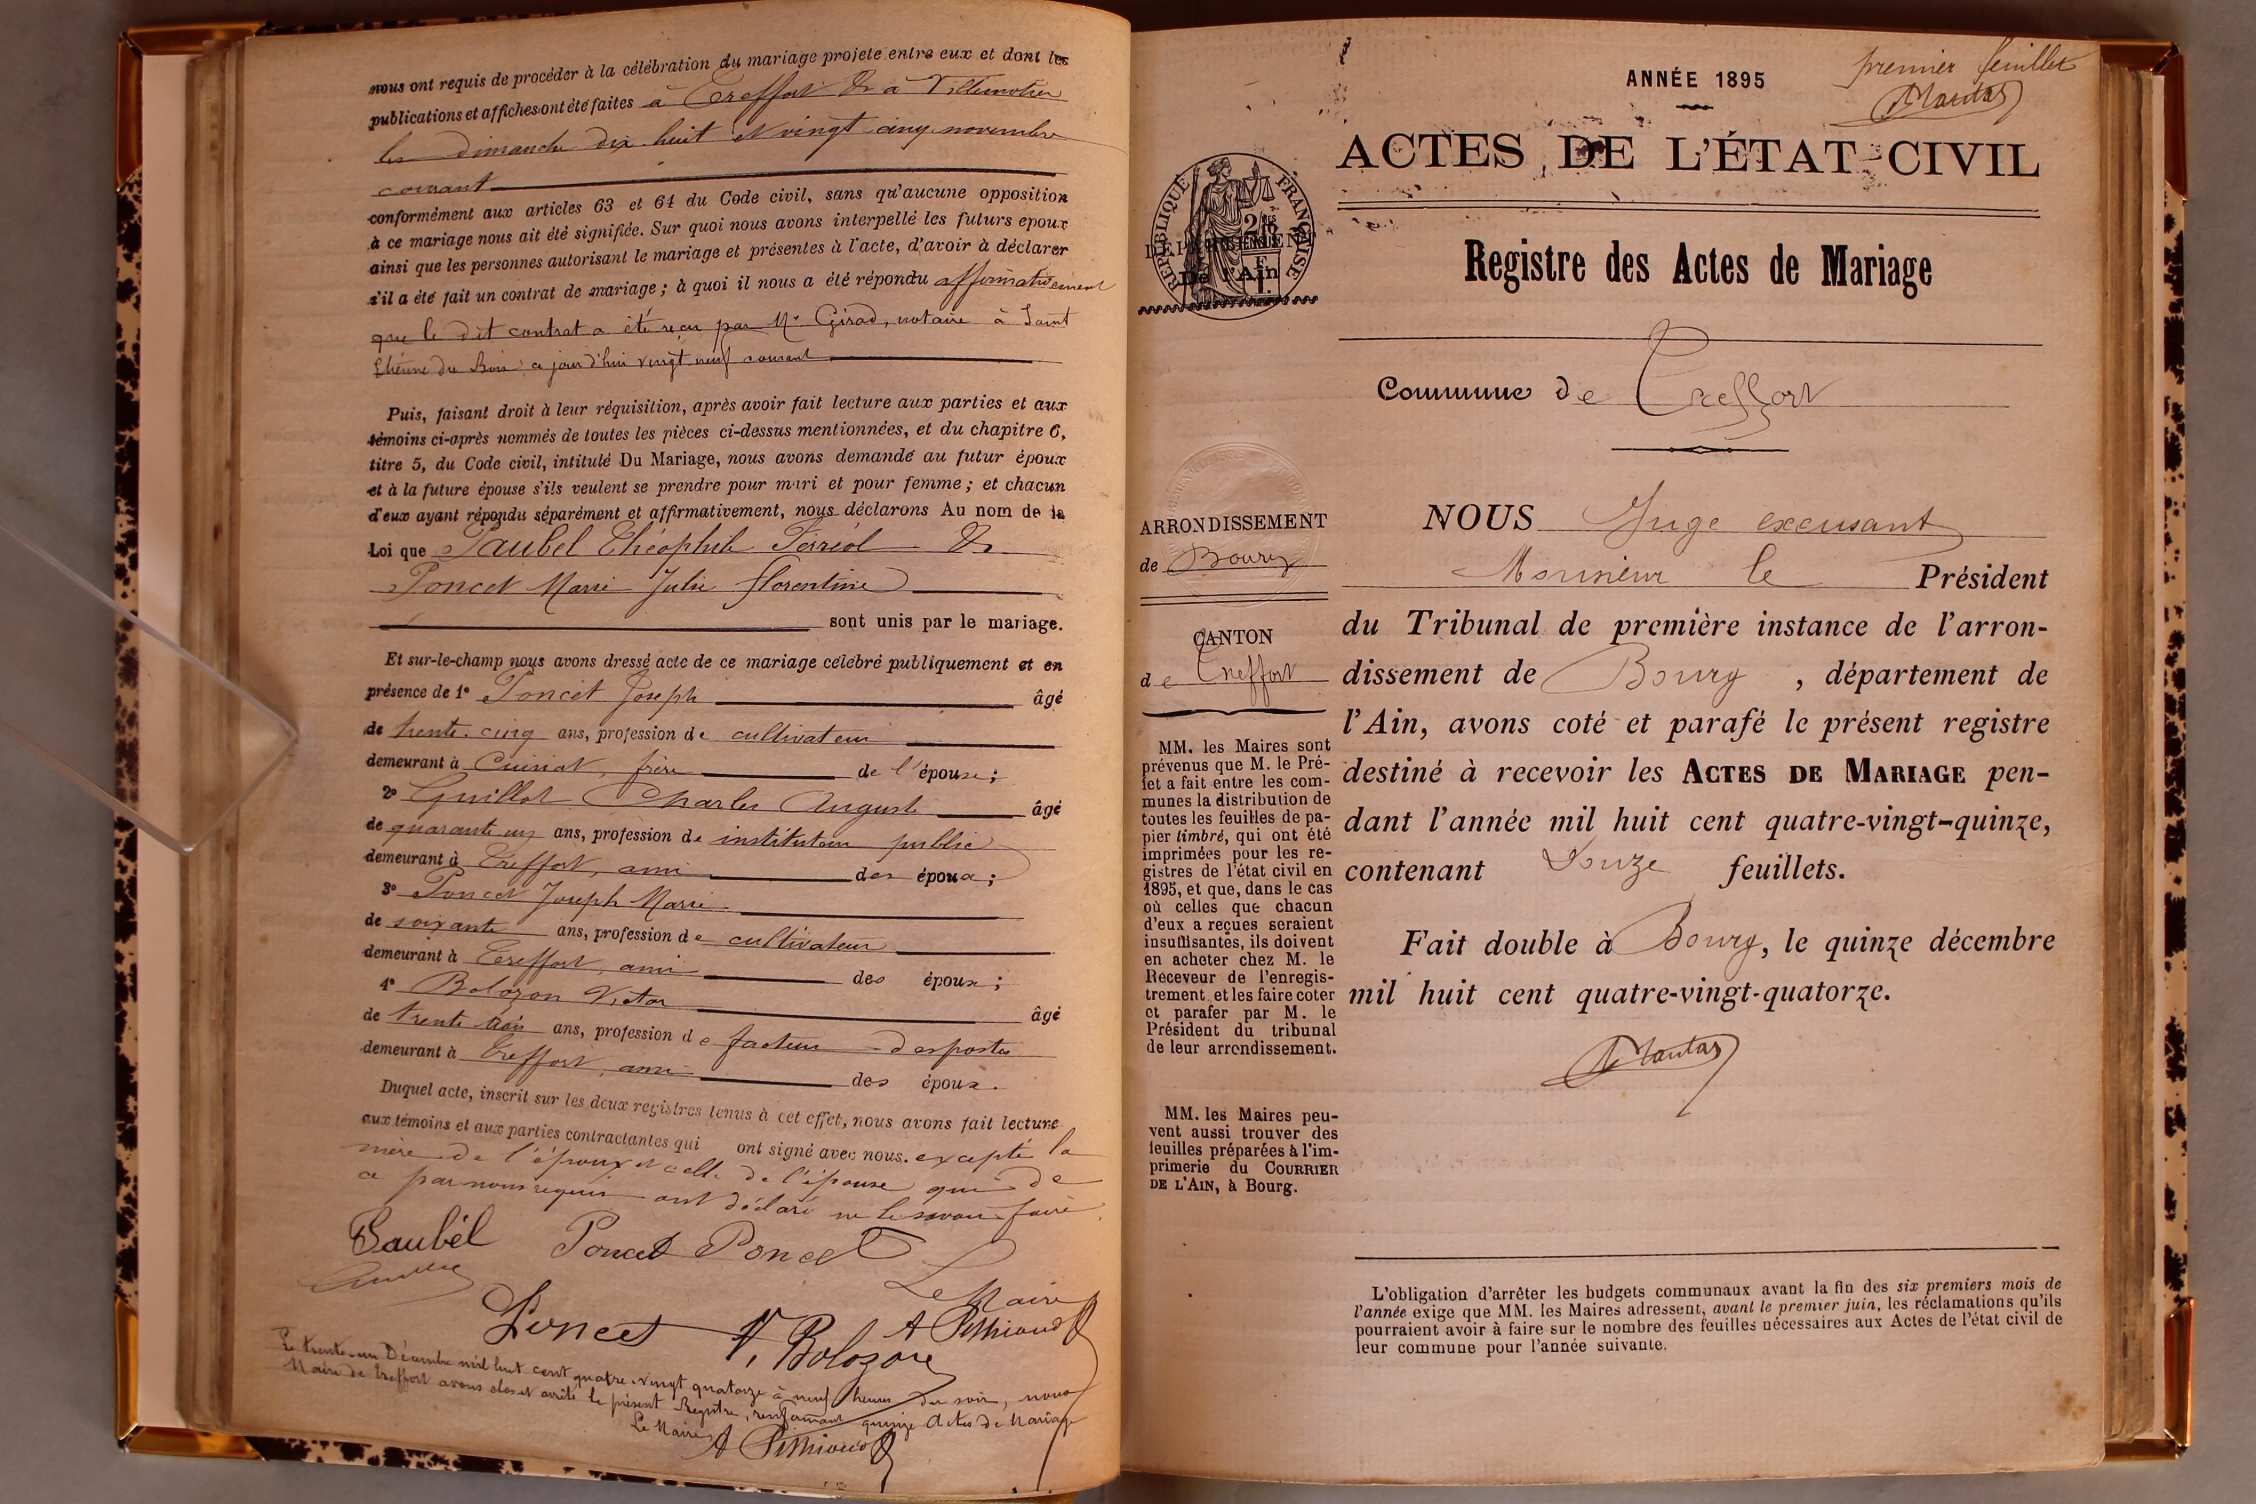 nous ont requis de procéder à la célébration du mariage projeté entre eux et dont les
publications et affiches ont été faites à Treffort & à Villemotier
les dimanche dix huit et vingt cinq novembre
courant
conformément aux articles 63 et 64 du Code civil, sans qu'aucune opposition
à ce mariage nous ait été signifiée. Sur quoi nous avons interpellé les futurs époux
ainsi que les personnes autorisant le mariage et présentes à l'acte, d'avoir à déclarer
s'il a été fait un contrat de mariage ; à quoi il nous a été répondu affirmativement
que le dit contrat a été reçu par Me Girod, notaire à Saint
Etienne du Bois ce jourd'hui vingt neuf courant
Puis, faisant droit à leur réquisition, après avoir fait lecture aux parties et aux
témoins ci-après nommés de toutes les pièces ci-dessus mentionnées, et du chapitre 6,
titre 5, du Code civil, intitulé Du Mariage, nous avons demandé au futur époux
et à la future épouse s'ils veulent se prendre pour mari et pour femme ; et chacun
d'eux ayant répondu séparément et affirmativement, nous déclarons Au nom de la
Loi que Saubel Théophile Ferréol &
Poncet Marie Julie Florentine
sont unis par le mariage.
Et sur-le-champ nous avons dressé acte de ce mariage célébré publiquement et en
présence de 1º Poncet Joseph âgé
de trente cinq ans, profession de cultivateur
demeurant à Cuisiat, frère de l'épouse ;
2º Guillot Charles Auguste âgé
de quarante un ans, profession de instituteur public
demeurant à Treffort, ami des époux ;
3º Poncet Joseph Marie
de soixante ans, profession de cultivateur
demeurant à Treffort, ami des époux ;
4º Bolozon Victor âgé
de trente trois ans, profession de facteur des postes
demeurant à Treffort, ami des époux.
Duquel acte, inscrit sur les deux registres tenus à cet effet, nous avons fait lecture
aux témoins et aux parties contractantes qui ont signé avec nous. excepté la
mère de l'époux et celle de l'épouse qui de
ce par nous requis ont déclaré ne le savoir faire.
Saubel Poncet Poncet
Le Maire
Poncet V. Bolozon A Pethioud
Le trente-un Décembre mil huit cent quatre-vingt quatorze à neuf heures du soir, nous
Maire de Treffort avons clos et arrêté le présent Registre, renfermant quinze Actes de Mariage
Le Maire
A Pethioud
premier feuillet
ANNÉE 1895
ACTES DE L'ÉTAT CIVIL
RÉPUBLIQUE FRANÇAISE
DÉPARTEMENT
De l'Ain
Registre des Actes de Mariage
Commune de Treffort
ARRONDISSEMENT
de Bourg
CANTON
de Treffort
MM. les Maires sont
prévenus que M. le Pré-
fet a fait entre les com-
munes la distribution de
toutes les feuilles de pa-
pier timbré, qui ont été
imprimées pour les re-
gistres de l'état civil en
1895, et que, dans le cas
où celles que chacun
d'eux a reçues seraient
insuffisantes, ils doivent
en acheter chez M. le
Receveur de l'enregis-
trement et les faire coter
et parafer par M. le
Président du tribunal
de leur arrondissement.
MM. les Maires peu-
vent aussi trouver des
feuilles préparées à l'im-
primerie du COURRIER
DE L'AIN, à Bourg.
NOUS Juge excusant
Monsieur le Président
du Tribunal de première instance de l'arron-
dissement de Bourg, département de
l'Ain, avons coté et parafé le présent registre
destiné à recevoir les ACTES DE MARIAGE pen-
dant l'année mil huit cent quatre-vingt-quinze,
contenant Douze feuillets.
Fait double à Bourg, le quinze décembre
mil huit cent quatre-vingt-quatorze.
L'obligation d'arrêter les budgets communaux avant la fin des six premiers mois de
l'année exige que MM. les Maires adressent, avant le premier juin, les réclamations qu'ils
pourraient avoir à faire sur le nombre des feuilles nécessaires aux Actes de l'état civil de
leur commune pour l'année suivante.